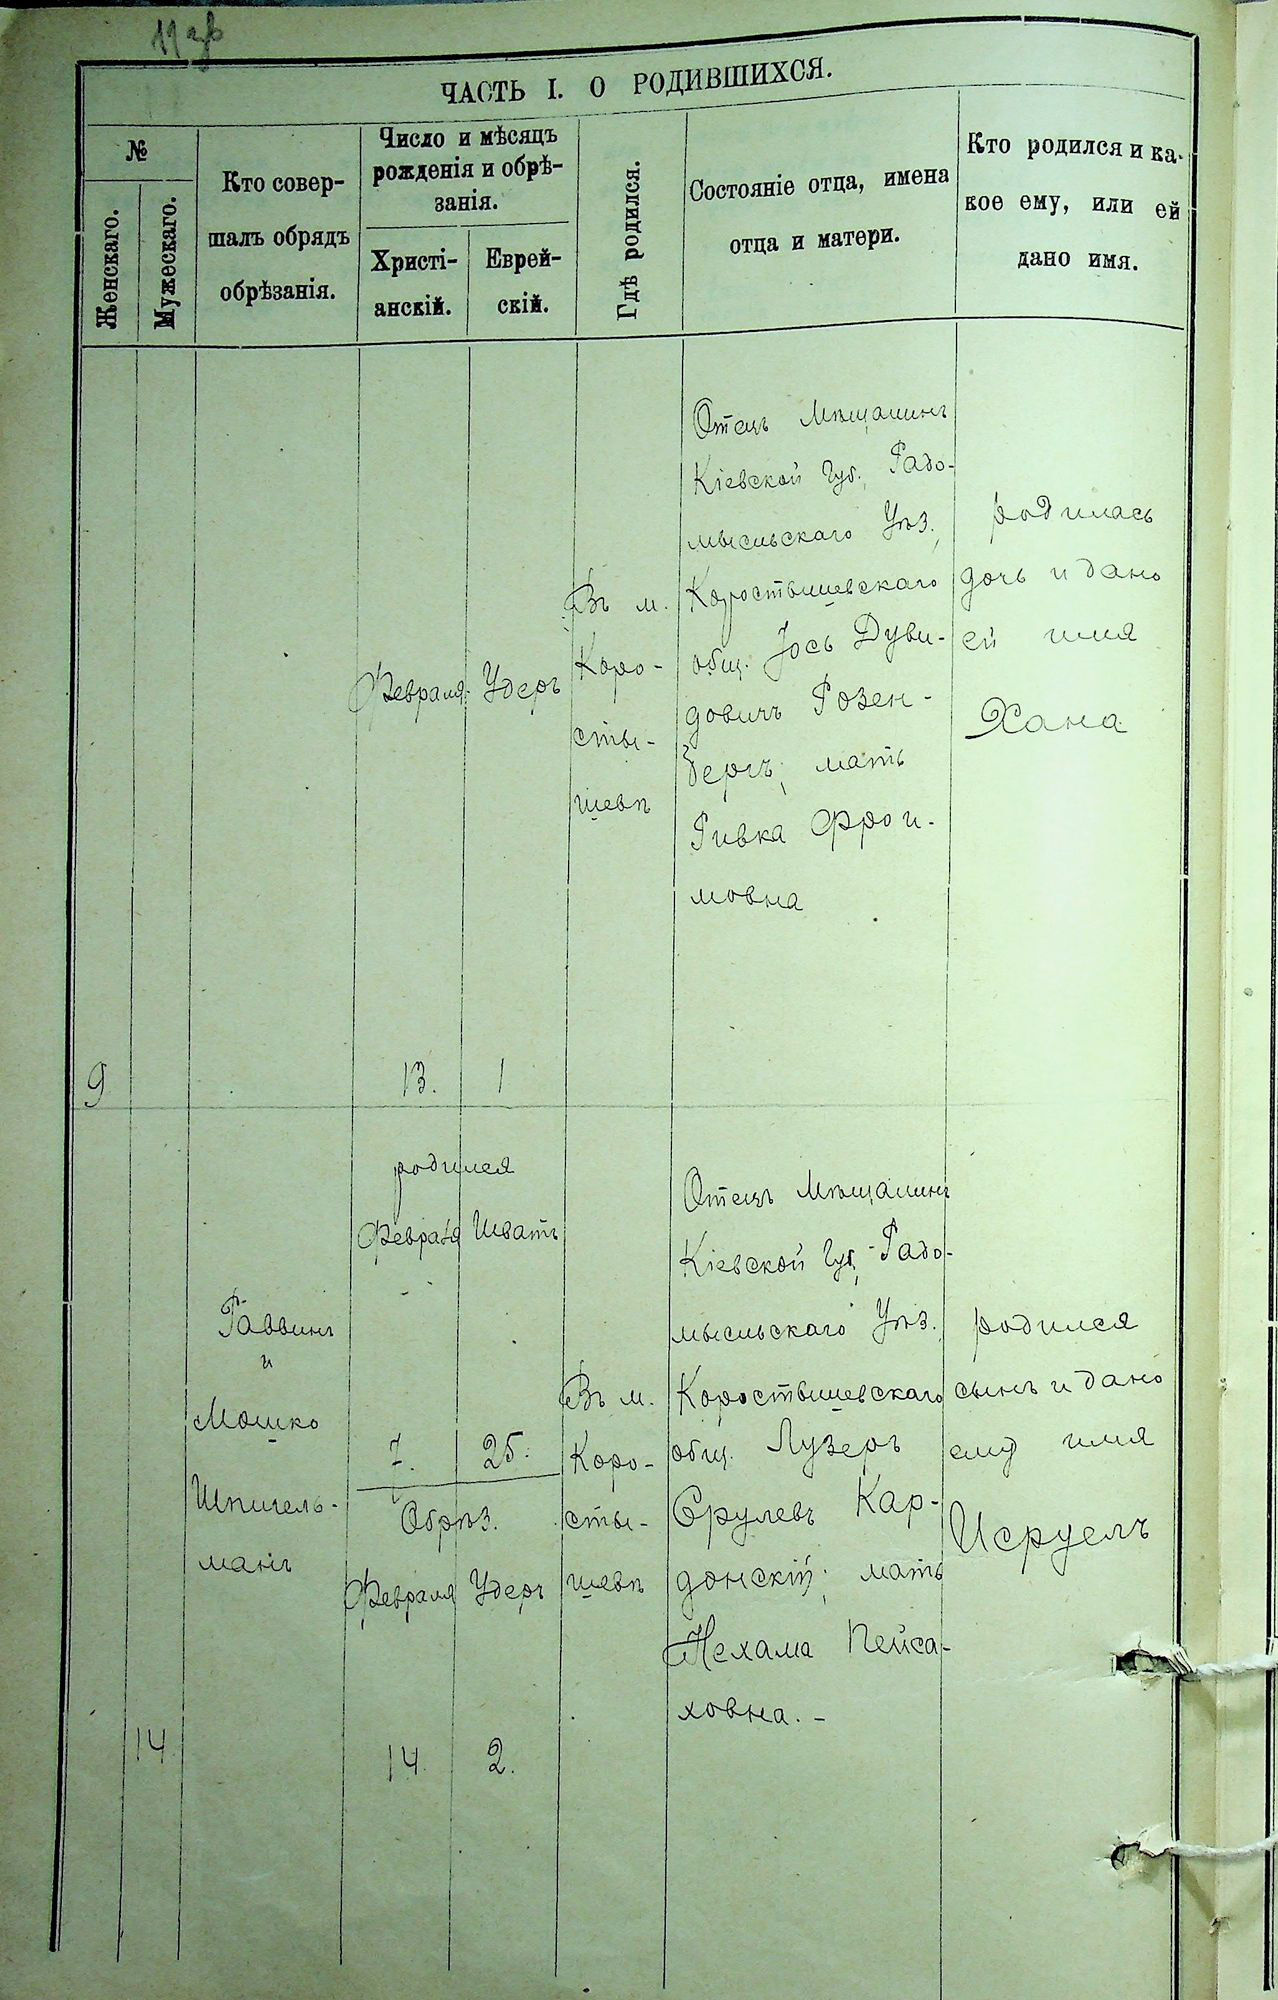 ЧАСТЬ I. О РОДИВШИХСЯ.
№
Женскаго.
Мужескаго.
Кто совер-
шалъ обрядъ
обрѣзанія.
Число и мѣсяцъ
рожденія и обрѣ-
занія.
Христі-
анскій.
Еврей-
скій.
Гдѣ родился.
Состояніе отца, имена
отца и матери.
Кто родился и ка-
кое ему, или ей
дано имя.
9
Февраля
13.
Удеръ
1
Въ м.
Коро-
сты-
шевѣ
Отецъ Мѣщанинъ
Кіевской Губ. Радо-
мысльскаго Уѣз.
Коростышевскаго
общ. Іось Дуви-
довичъ Розен-
бергъ, мать
Ривка Фрои-
мовна
родилась
дочь и дано
ей имя
Хана
14
Раввинъ
и
Мошко
Шпигель-
манъ
родился
Февраля Шватъ
7. 25.
Обрѣз.
Февраля Удеръ
14. 2.
Въ м.
Коро-
сты-
шевѣ
Отецъ Мѣщанинъ
Кіевской Губ. Радо-
мысльскаго Уѣз.
Коростышевскаго
общ. Лузеръ
Срулевъ Кар-
донскій, мать
Нехама Пейса-
ховна. –
родился
сынъ и дано
ему имя
Исруель